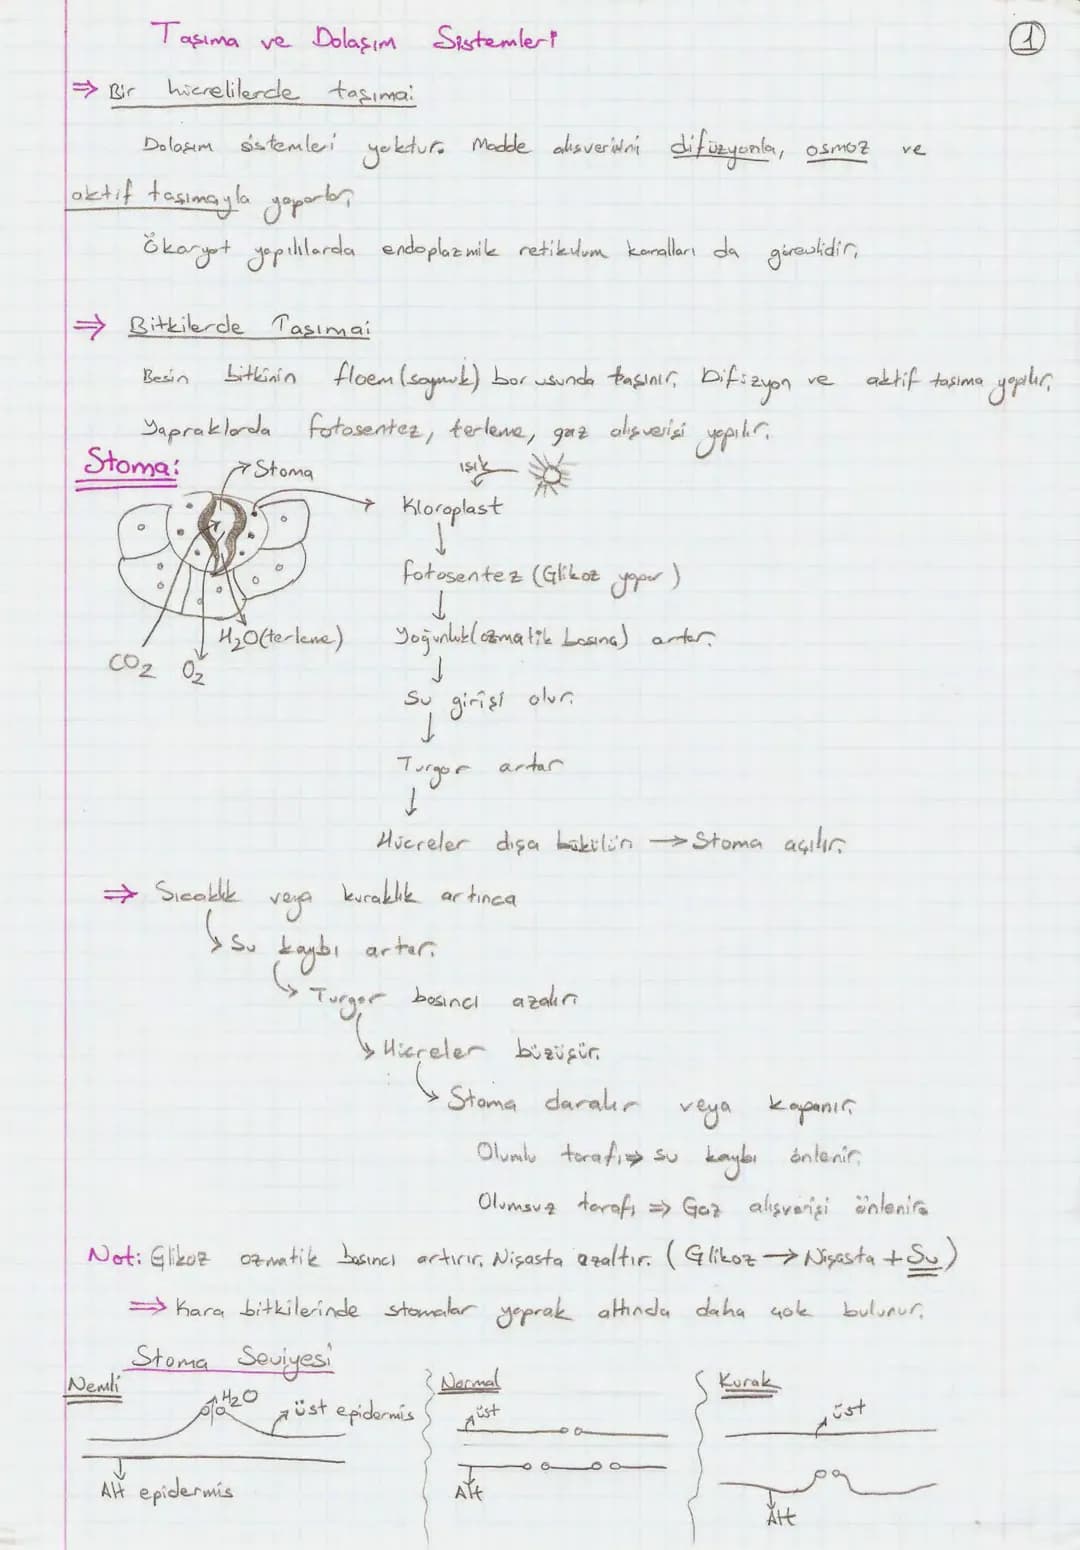 Taşıma ve Dolaşım Sistemleri
1
⇒ Bir hücrelilerde taşıma:
Dolaşım sistemleri yoktur. Madde alışverişini difüzyonla, osmoz ve
aktif taşımayla yaparlar.
Ökaryot yapılılarda endoplazmik retikulum kanalları da görevlidir.
⇒ Bitkilerde Taşıma:
Besin bitkinin floem (soymuk) borusunda taşınır. Difüzyon ve aktif taşıma yapılır.
Yapraklarda fotosentez, terleme, gaz alışverişi yapılır.
Stoma:
Stoma
ışık
Kloroplast
↓
fotosentez (Glikoz yapar)
↓
H₂O (terleme)
Yoğunluk (ozmatik basınç) artar.
CO₂ O₂
↓
Su girişi olur.
↓
Turgor artar
↓
Hücreler dışa bükülür → Stoma açılır.
⇒ Sıcaklık veya kuraklık artınca
Su kaybı artar.
Turgor basıncı azalır.
Hücreler büzüşür.
Stoma daralır veya kapanır.
Olumlu tarafı ⇒ su kaybı önlenir.
Olumsuz tarafı ⇒ Gaz alışverişi önlenir.
Not: Glikoz ozmatik basıncı artırır. Nişasta azaltır. (Glikoz → Nişasta + Su)
⇒ Kara bitkilerinde stomalar yaprak altında daha çok bulunur.
Stoma Seviyesi
Nemli
H₂O
üst epidermis
Alt epidermis
Normal
üst
Alt
Kurak
üst
Alt